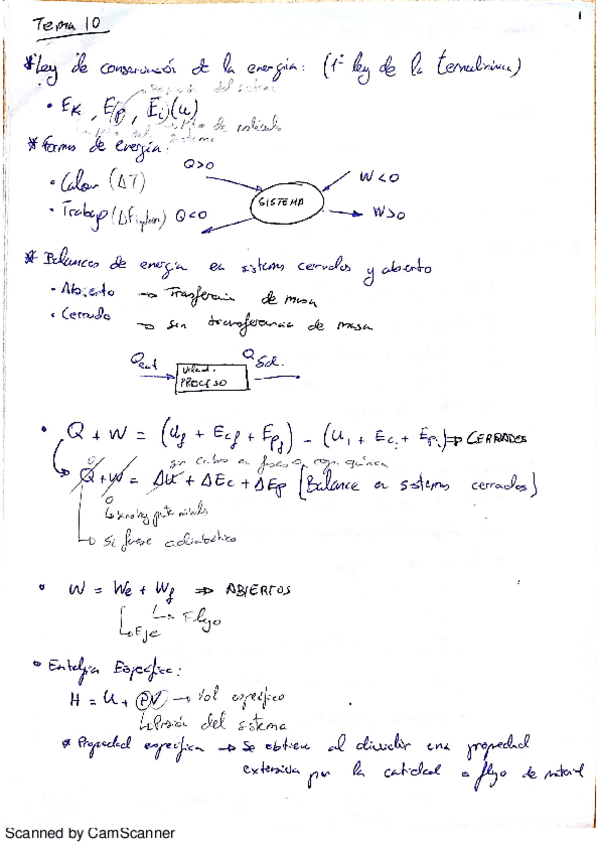 Tema 10
1
* Ley de conservación de la energía: (1ª ley de la termodinámica)
• Ek, Ep, Ei (u)
del sistema
sistema
* Formas de energía:
• Calor (ΔT)
• Trabajo
Q>0
W<0
SISTEMA
Q<0
W>0
* Balances de energía en sistemas cerrados y abierto
• Abierto → Trasferencia de masa
• Cerrado → sin transferencia de masa
Qent
PROCESO
Qsal.
• Q + W = (Uf + Ecf + Epf) - (Ui + Eci + Epi) ⇒ CERRADOS
0
Q + W = ΔU + ΔEc + ΔEp [Balance en sistemas cerrados]
0
Si fuese adiabático
• W = We + Wf ⇒ ABIERTOS
Flujo
Eje
• Entalpia Específica:
H = U + PV → Vol específico
Presión del sistema
* Propiedad específica → Se obtiene al dividir una propiedad
extensiva por la cantidad o flujo de material
Scanned by CamScanner